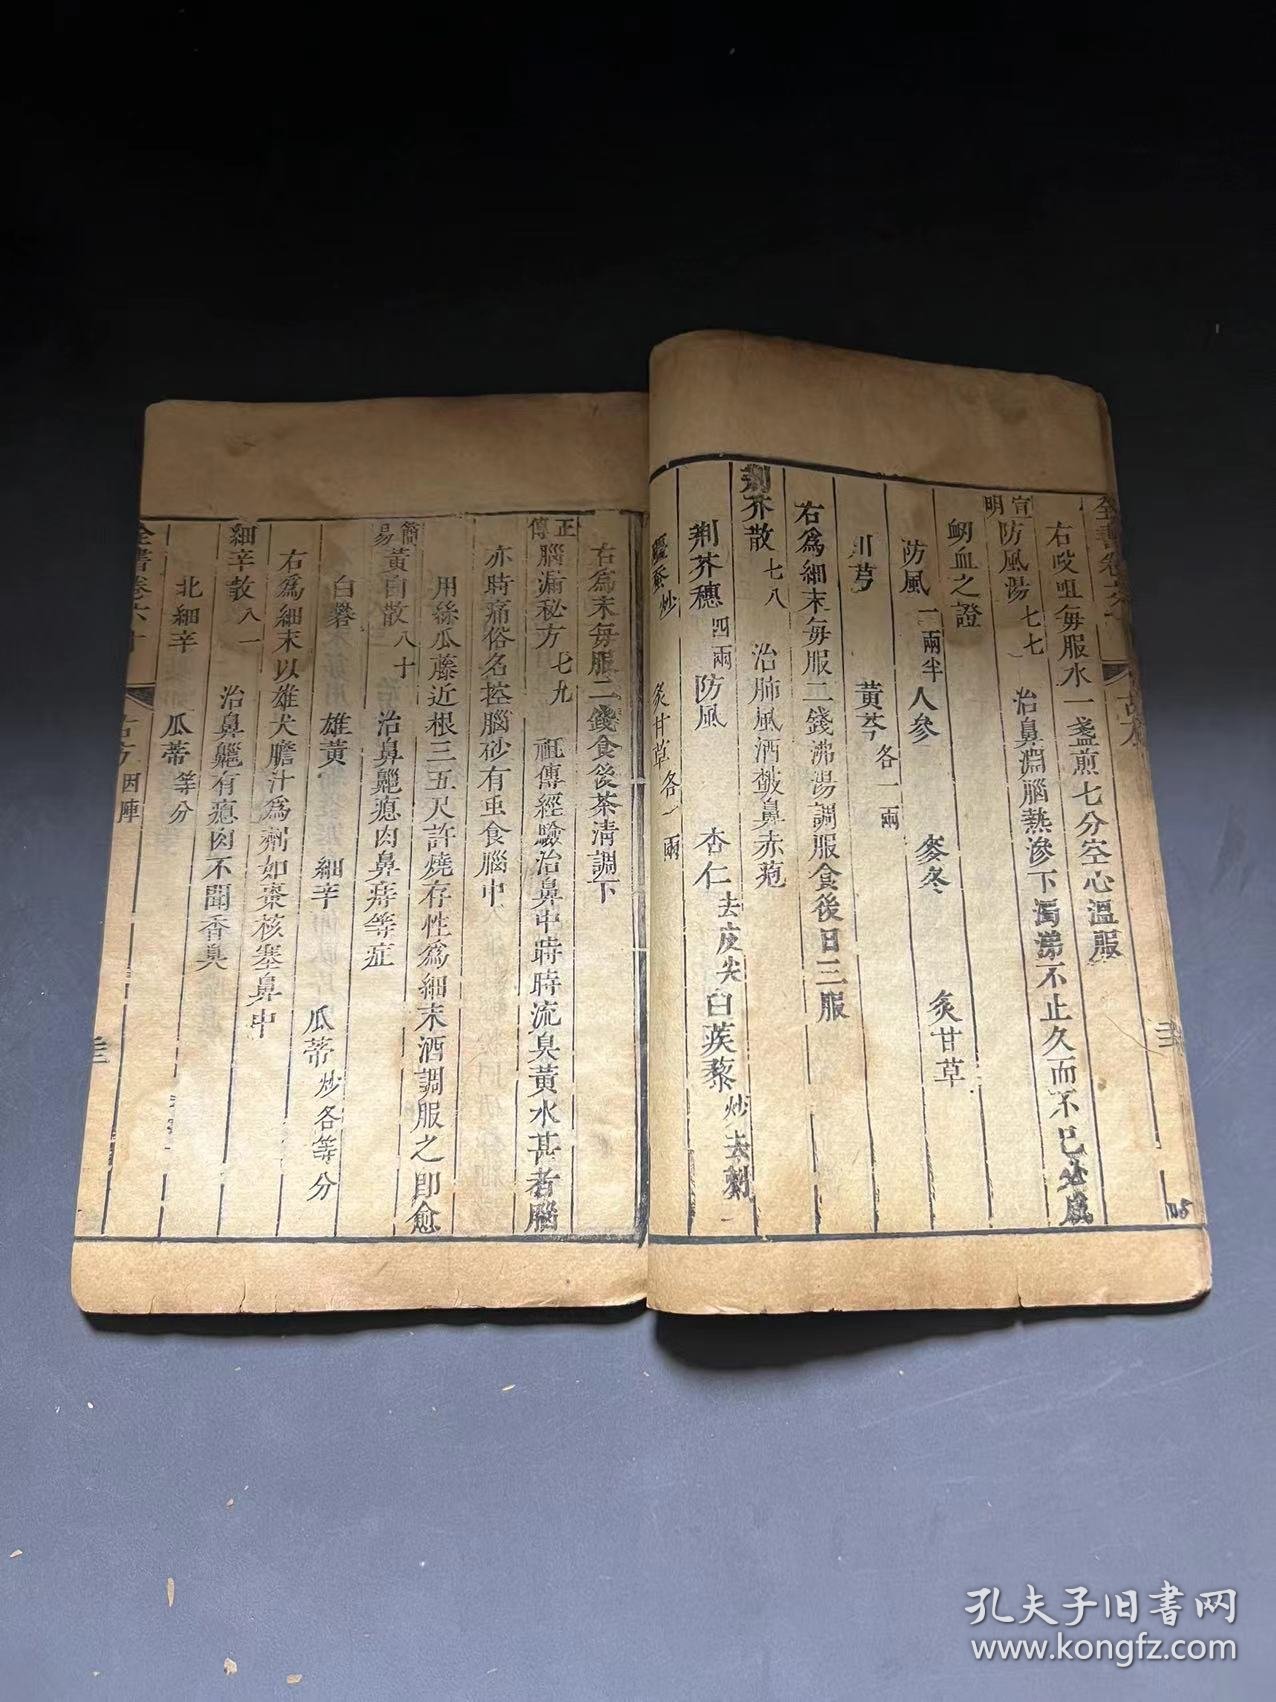 右㕮咀每服水一盞煎七分空心溫服
宣明防風湯 七七 治鼻淵腦熱滲下濁涕不止久而不已必成
衂血之證
防風 一兩半 人參 麥冬 炙甘草
川芎 黃芩 各一兩
右爲細末每服二錢沸湯調服食後日三服
荆芥散 七八 治肺風酒皶鼻赤疱
荆芥穗 四兩 防風 杏仁 去皮尖 白蒺藜 炒去刺
殭蚕 炒 炙甘草 各一兩
右爲末每服二錢食後茶清調下
正傳腦漏秘方 七九 祖傳經驗治鼻中時時流臭黃水甚者腦
亦時痛俗名控腦砂有虫食腦中
用絲瓜藤近根三五尺許燒存性爲細末酒調服之卽愈
簡易黃白散 八十 治鼻齆瘜肉鼻痔等症
白礬 雄黃 細辛 瓜蒂 炒各等分
右爲細末以雄犬膽汁爲劑如棗核塞鼻中
細辛散 八一 治鼻齆有瘜肉不聞香臭
北細辛 瓜蒂 等分
全書卷六十 古方 因陣
孔夫子旧书网
www.kongfz.com